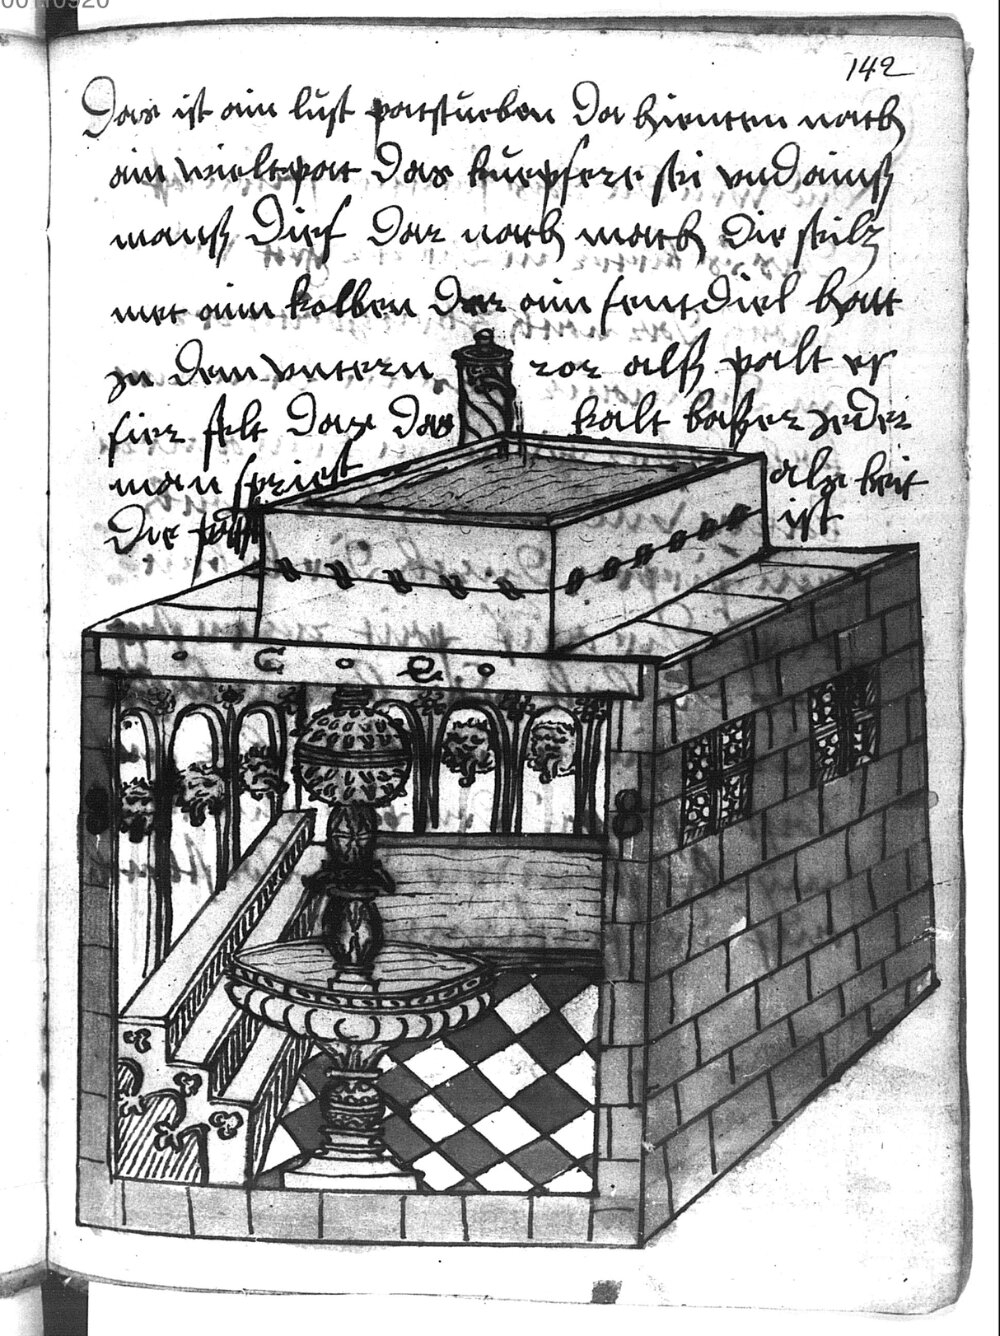 00110920
142
Das ist ain lust patstueben Da hienten nach
ain wieltpatt Das kuepfere sei vnd ainß
manß Dief Dar nach mach Die stilz
met aim kolben Der ain fentdiel hatt
zu dem vntern ror alß palt er
fier felt Dax Das kalt baßer jeder
man spriest alzeit
Die ist
C C